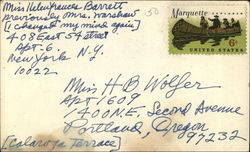 Miss Helenfrances Barrett
previously Mrs. Warshaw
[I changed my mind again]
408 East 54 Street
Apt. 6.
New York N.Y.
10022
50
Marquette
6¢
UNITED STATES
Miss H B Wolfer
Apt 1609
1400 N.E. Second Avenue
Portland, Oregon
97232
[Calaroga Terrace]